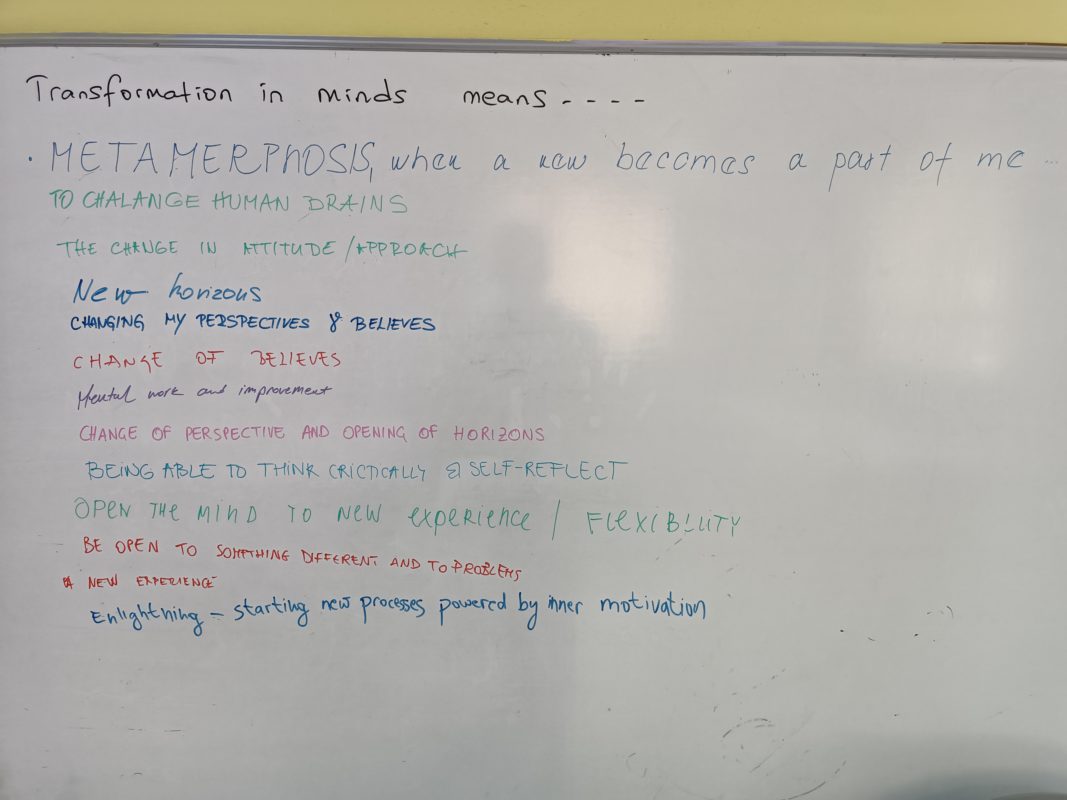 Transformation in minds means - - - -
• METAMERPHOSIS, when a new becomes a part of me ...
TO CHALANGE HUMAN DRAINS
THE CHANGE IN ATTITUDE / APPROACH
New horizons
CHANGING MY PERSPECTIVES & BELIEVES
CHANGE OF BELIEVES
Mental work and improvement
CHANGE OF PERSPECTIVE AND OPENING OF HORIZONS
BEING ABLE TO THINK CRICTICALLY & SELF-REFLECT
OPEN THE MIND TO NEW experience / FLEXIBLLITY
BE OPEN TO SOMTHING DIFFERENT AND TO PROBLEMS
& NEW EXPERIENCE
Enlightning – starting new processes powered by inner motivation